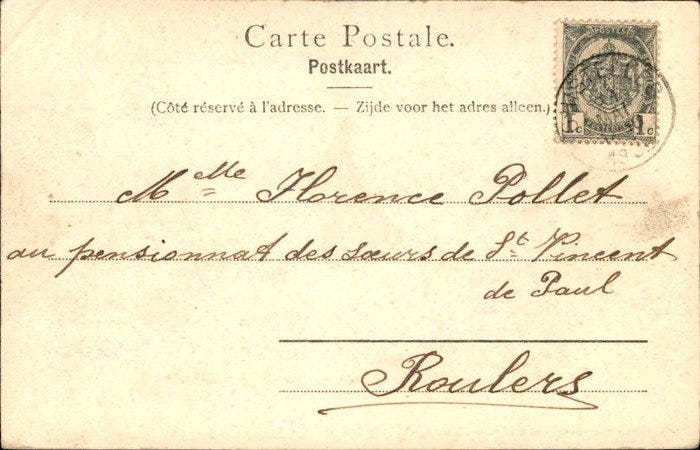 Carte Postale.
Postkaart.
(Côté réservé à l'adresse. — Zijde voor het adres alleen.)
POSTES
1c 1c
Mlle Florence Pollet
au pensionnat des sœurs de St Vincent
de Paul
Roulers